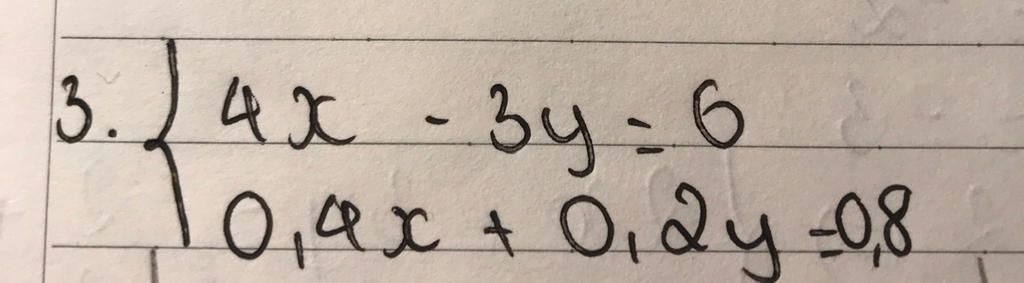 3. { 4x - 3y = 6
0,4x + 0,2y = 0,8